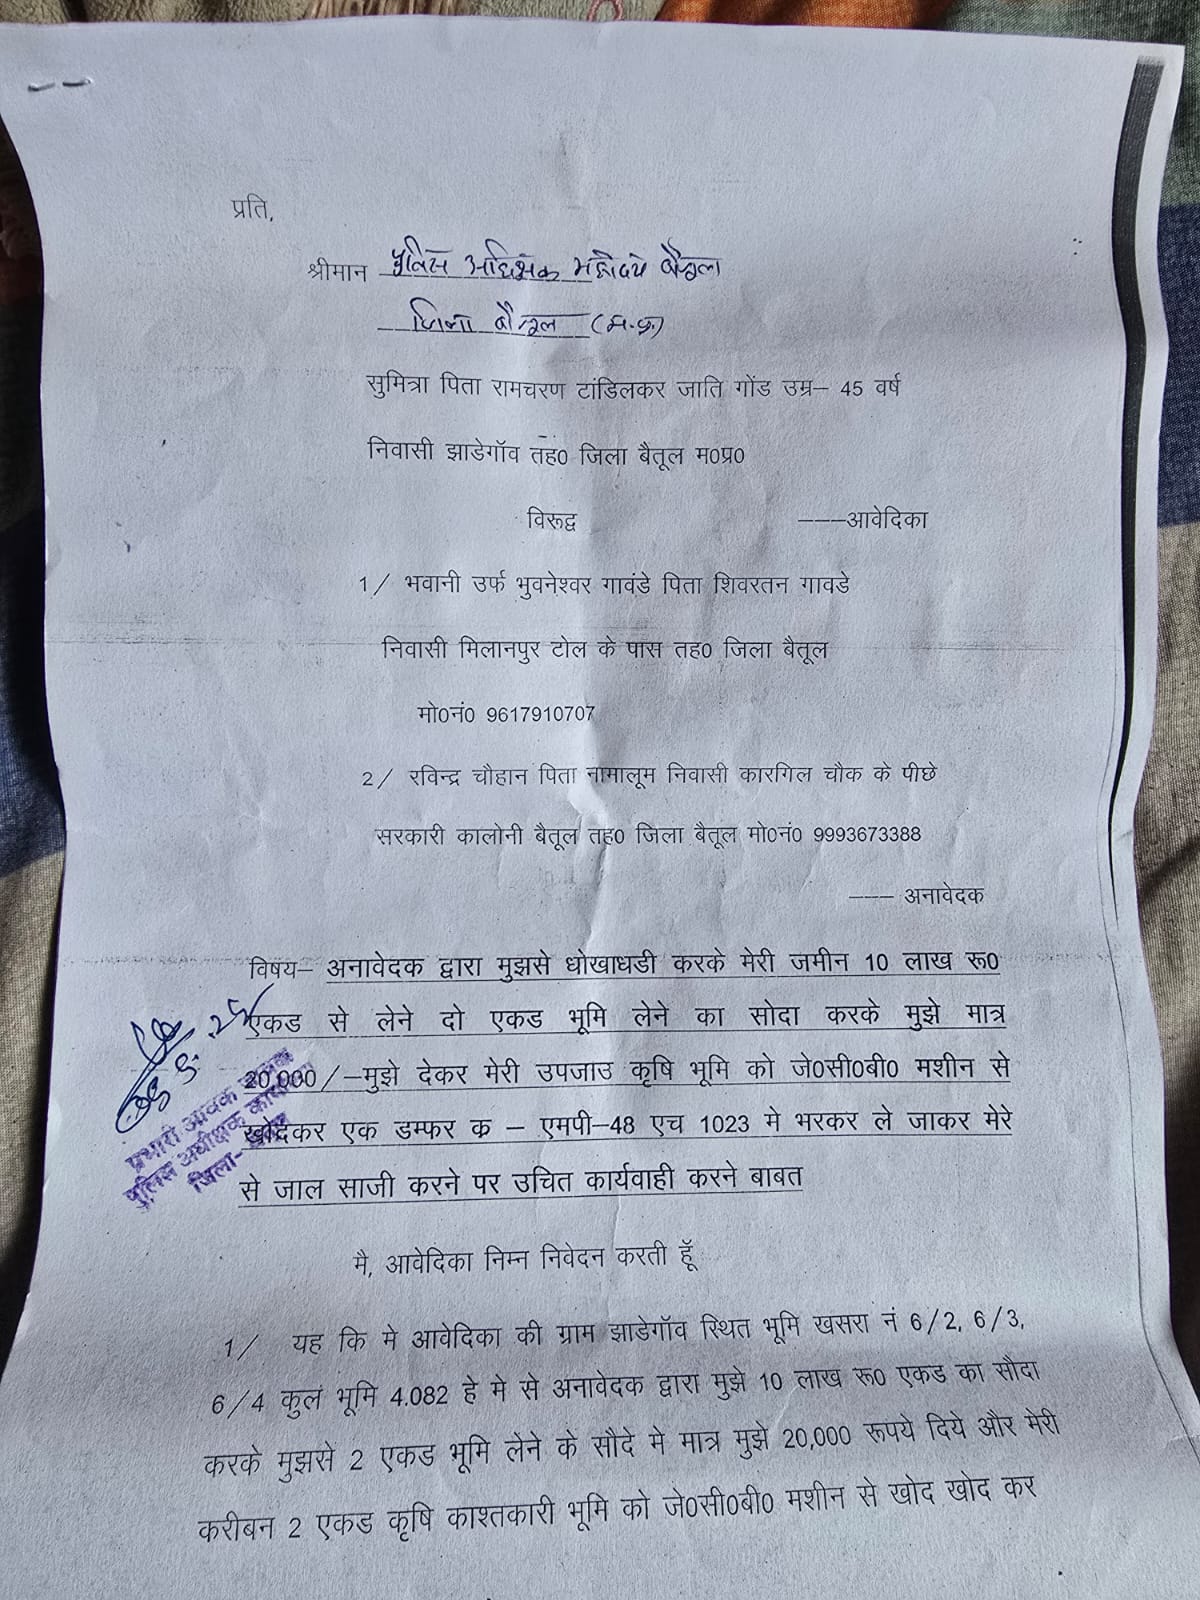 प्रति,
श्रीमान पुलिस अधिक्षक महोदय बैतूल
जिला बैतूल (म.प्र.)
सुमित्रा पिता रामचरण टांडिलकर जाति गोंड उम्र– 45 वर्ष
निवासी झाडेगॉव तह0 जिला बैतूल म0प्र0
विरूद्व ––––आवेदिका
1/ भवानी उर्फ भुवनेश्वर गावंडे पिता शिवरतन गावडे
निवासी मिलानपुर टोल के पास तह0 जिला बैतूल
मो0नं0 9617910707
2/ रविन्द्र चौहान पिता नामालूम निवासी कारगिल चौक के पीछे
सरकारी कालोनी बैतूल तह0 जिला बैतूल मो0नं0 9993673388
––– अनावेदक
विषय– अनावेदक द्वारा मुझसे धोखाधडी करके मेरी जमीन 10 लाख रू0
एकड से लेने दो एकड भूमि लेने का सोदा करके मुझे मात्र
20,000/–मुझे देकर मेरी उपजाउ कृषि भूमि को जे0सी0बी0 मशीन से
खोदकर एक डम्फर क्र – एमपी–48 एच 1023 मे भरकर ले जाकर मेरे
से जाल साजी करने पर उचित कार्यवाही करने बाबत
प्रभारी आवक
पुलिस अधीक्षक
जिला-
मै, आवेदिका निम्न निवेदन करती हूँ
1/ यह कि मे आवेदिका की ग्राम झाडेगॉव स्थित भूमि खसरा नं 6/2, 6/3,
6/4 कुल भूमि 4.082 हे मे से अनावेदक द्वारा मुझे 10 लाख रू0 एकड का सौदा
करके मुझसे 2 एकड भूमि लेने के सौदे मे मात्र मुझे 20,000 रूपये दिये और मेरी
करीबन 2 एकड कृषि काश्तकारी भूमि को जे0सी0बी0 मशीन से खोद खोद कर